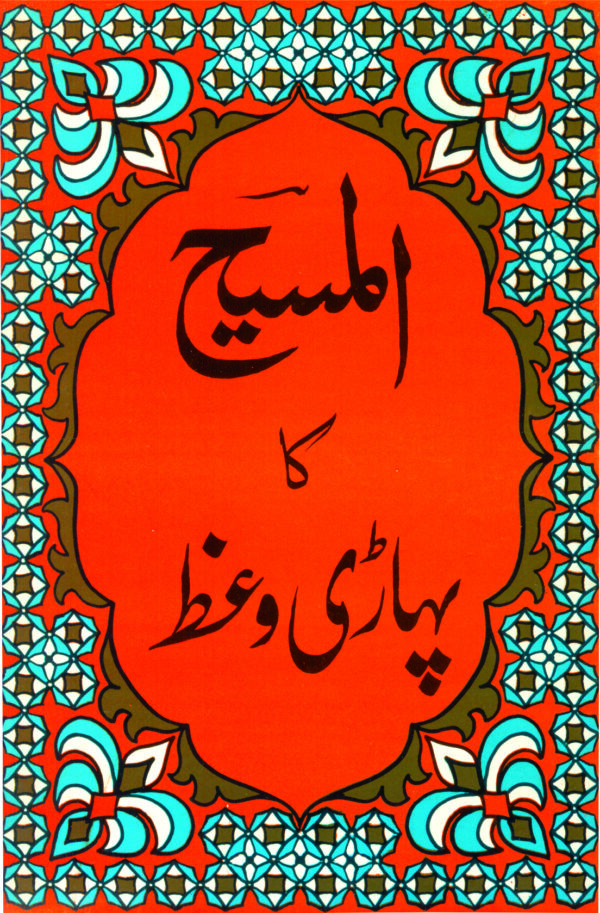 المسیح
کا
پہاڑی وعظ